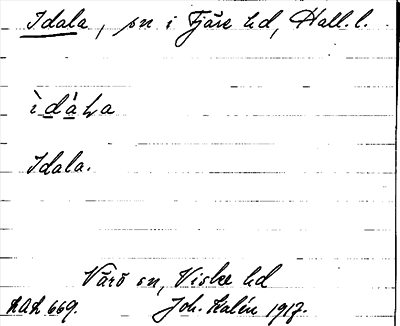 Idala, sn i Fjäre hd, Hall. l.
ìdàla
Idala.
Värö sn, Viske hd
Joh. Kalén 1917.